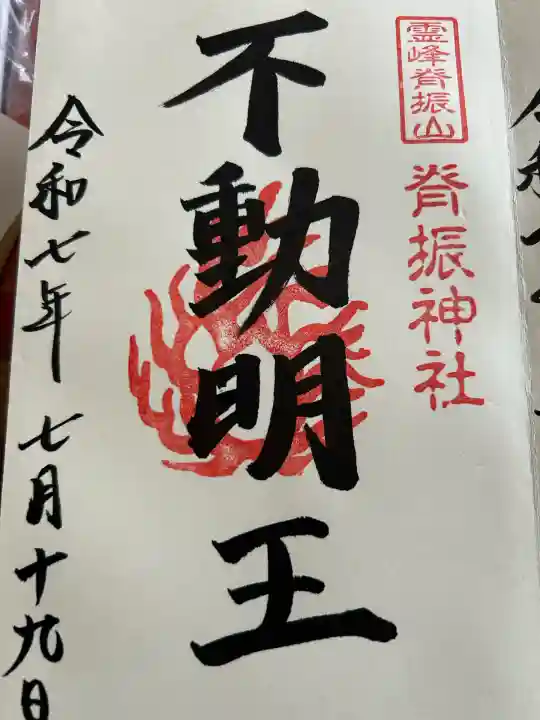 霊峰脊振山
脊振神社
不動明王
令和七年 七月十九日